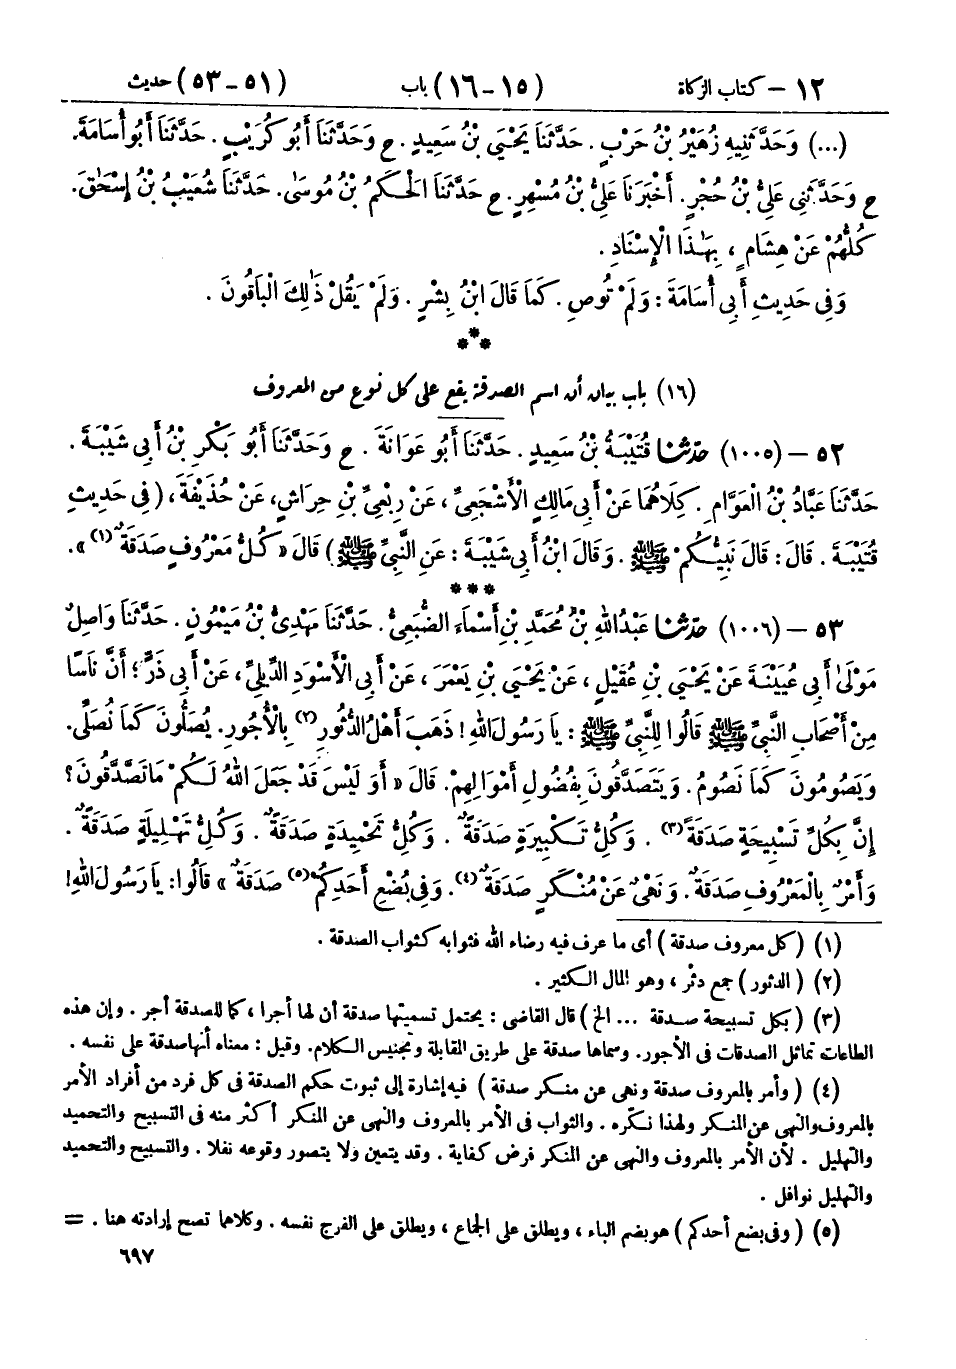 ١٢ – كتاب الزكاة (١٥ – ١٦) باب (٥١ – ٥٣) حديث
(...) وَحَدَّثَنِيهِ زُهَيْرُ بْنُ حَرْبٍ . حَدَّثَنَا يَحْيَى بْنُ سَعِيدٍ . ح وَحَدَّثَنَا أَبُو كُرَيْبٍ . حَدَّثَنَا أَبُو أُسَامَةَ .
ح وَحَدَّثَنِي عَلِيُّ بْنُ حُجْرٍ . أَخْبَرَنَا عَلِيُّ بْنُ مُسْهِرٍ . ح حَدَّثَنَا الْحَكَمُ بْنُ مُوسَىٰ . حَدَّثَنَا شُعَيْبُ بْنُ إِسْحَٰقَ .
كُلُّهُمْ عَنْ هِشَامٍ ، بِهَٰذَا الْإِسْنَادِ .
وَفِي حَدِيثِ أَبِي أُسَامَةَ : وَلَمْ تُوصِ . كَمَا قَالَ ابْنُ بِشْرٍ . وَلَمْ يَقُلْ ذَٰلِكَ الْبَاقُونَ .
***
(١٦) باب بيان أن اسم الصدقة يقع على كل نوع من المعروف
٥٢ – (١٠٠٥) حَدَّثَنَا قُتَيْبَةُ بْنُ سَعِيدٍ . حَدَّثَنَا أَبُو عَوَانَةَ . ح وَحَدَّثَنَا أَبُو بَكْرِ بْنُ أَبِي شَيْبَةَ .
حَدَّثَنَا عَبَّادُ بْنُ الْعَوَّامِ . كِلَاهُمَا عَنْ أَبِي مَالِكٍ الْأَشْجَعِيِّ ، عَنْ رِبْعِيِّ بْنِ حِرَاشٍ ، عَنْ حُذَيْفَةَ ، ( فِي حَدِيثِ
قُتَيْبَةَ . قَالَ : قَالَ نَبِيُّكُمْ ﷺ . وَقَالَ ابْنُ أَبِي شَيْبَةَ : عَنِ النَّبِيِّ ﷺ ) قَالَ « كُلُّ مَعْرُوفٍ صَدَقَةٌ (١) » .
***
٥٣ – (١٠٠٦) حَدَّثَنَا عَبْدُ اللهِ بْنُ مُحَمَّدِ بْنِ أَسْمَاءَ الضُّبَعِيُّ . حَدَّثَنَا مَهْدِيُّ بْنُ مَيْمُونٍ . حَدَّثَنَا وَاصِلٌ
مَوْلَىٰ أَبِي عُيَيْنَةَ عَنْ يَحْيَىٰ بْنِ عُقَيْلٍ ، عَنْ يَحْيَىٰ بْنِ يَعْمَرَ ، عَنْ أَبِي الْأَسْوَدِ الدِّيلِيِّ ، عَنْ أَبِي ذَرٍّ ؛ أَنَّ نَاسًا
مِنْ أَصْحَابِ النَّبِيِّ ﷺ قَالُوا لِلنَّبِيِّ ﷺ : يَا رَسُولَ اللهِ ! ذَهَبَ أَهْلُ الدُّثُورِ (٢) بِالْأُجُورِ . يُصَلُّونَ كَمَا نُصَلِّي .
وَيَصُومُونَ كَمَا نَصُومُ . وَيَتَصَدَّقُونَ بِفُضُولِ أَمْوَالِهِمْ . قَالَ « أَوَ لَيْسَ قَدْ جَعَلَ اللهُ لَكُمْ مَا تَصَّدَّقُونَ ؟
إِنَّ بِكُلِّ تَسْبِيحَةٍ صَدَقَةً (٣) . وَكُلُّ تَكْبِيرَةٍ صَدَقَةٌ . وَكُلُّ تَحْمِيدَةٍ صَدَقَةٌ . وَكُلُّ تَهْلِيلَةٍ صَدَقَةٌ .
وَأَمْرٌ بِالْمَعْرُوفِ صَدَقَةٌ . وَنَهْيٌ عَنْ مُنْكَرٍ صَدَقَةٌ (٤) . وَفِي بُضْعِ أَحَدِكُمْ (٥) صَدَقَةٌ » قَالُوا : يَا رَسُولَ اللهِ !
(١) ( كل معروف صدقة ) أى ما عرف فيه رضاء الله فثوابه كثواب الصدقة .
(٢) ( الدثور ) جمع دثر ، وهو المال الكثير .
(٣) ( بكل تسبيحة صدقة ... الخ ) قال القاضى : يحتمل تسميتها صدقة أن لها أجرا ، كما للصدقة أجر . وإن هذه
الطاعات تماثل الصدقات فى الأجور . وسماها صدقة على طريق المقابلة وتجنيس الكلام . وقيل : معناه أنها صدقة على نفسه .
(٤) ( وأمر بالمعروف صدقة ونهى عن منكر صدقة ) فيه إشارة إلى ثبوت حكم الصدقة فى كل فرد من أفراد الأمر
بالمعروف والنهى عن المنكر ولهذا نكّره . والثواب فى الأمر بالمعروف والنهى عن المنكر أكثر منه فى التسبيح والتحميد
والتهليل . لأن الأمر بالمعروف والنهى عن المنكر فرض كفاية . وقد يتعين ولا يتصور وقوعه نفلا . والتسبيح والتحميد
والتهليل نوافل .
(٥) ( وفى بضع أحدكم ) هو بضم الباء ، ويطلق على الجماع ، ويطلق على الفرج نفسه . وكلاهما تصح إرادته هنا . =
٦٩٧